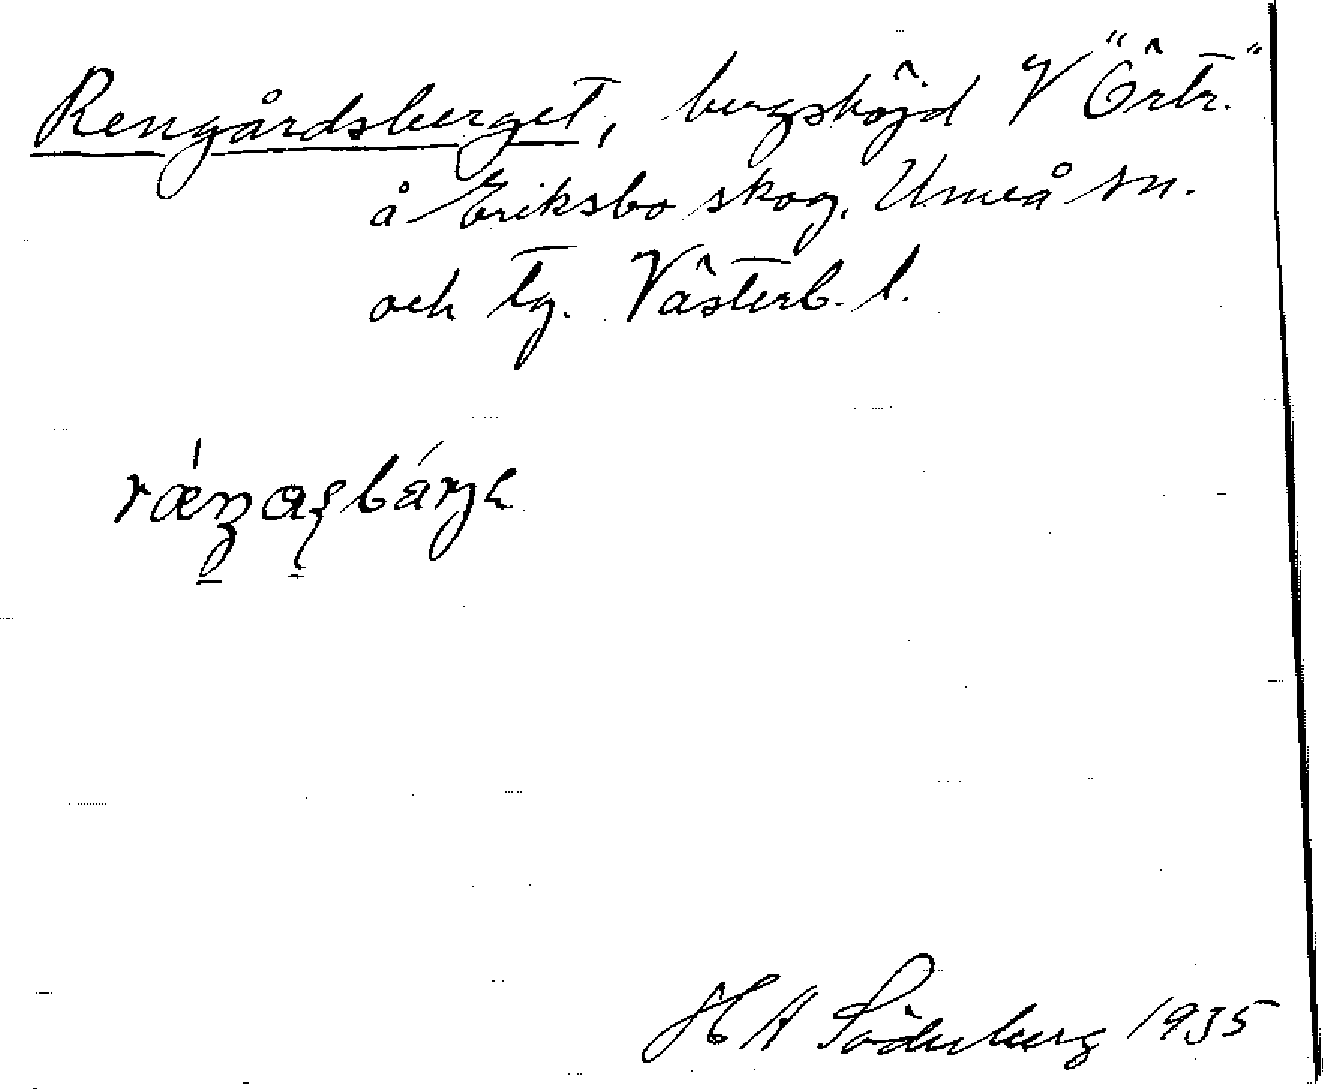 Rengårdsberget, bergshöjd V "Örtr."
å Eriksbo skog, Umeå sn.
och tg. Västerb. l.
H A Söderberg 1935